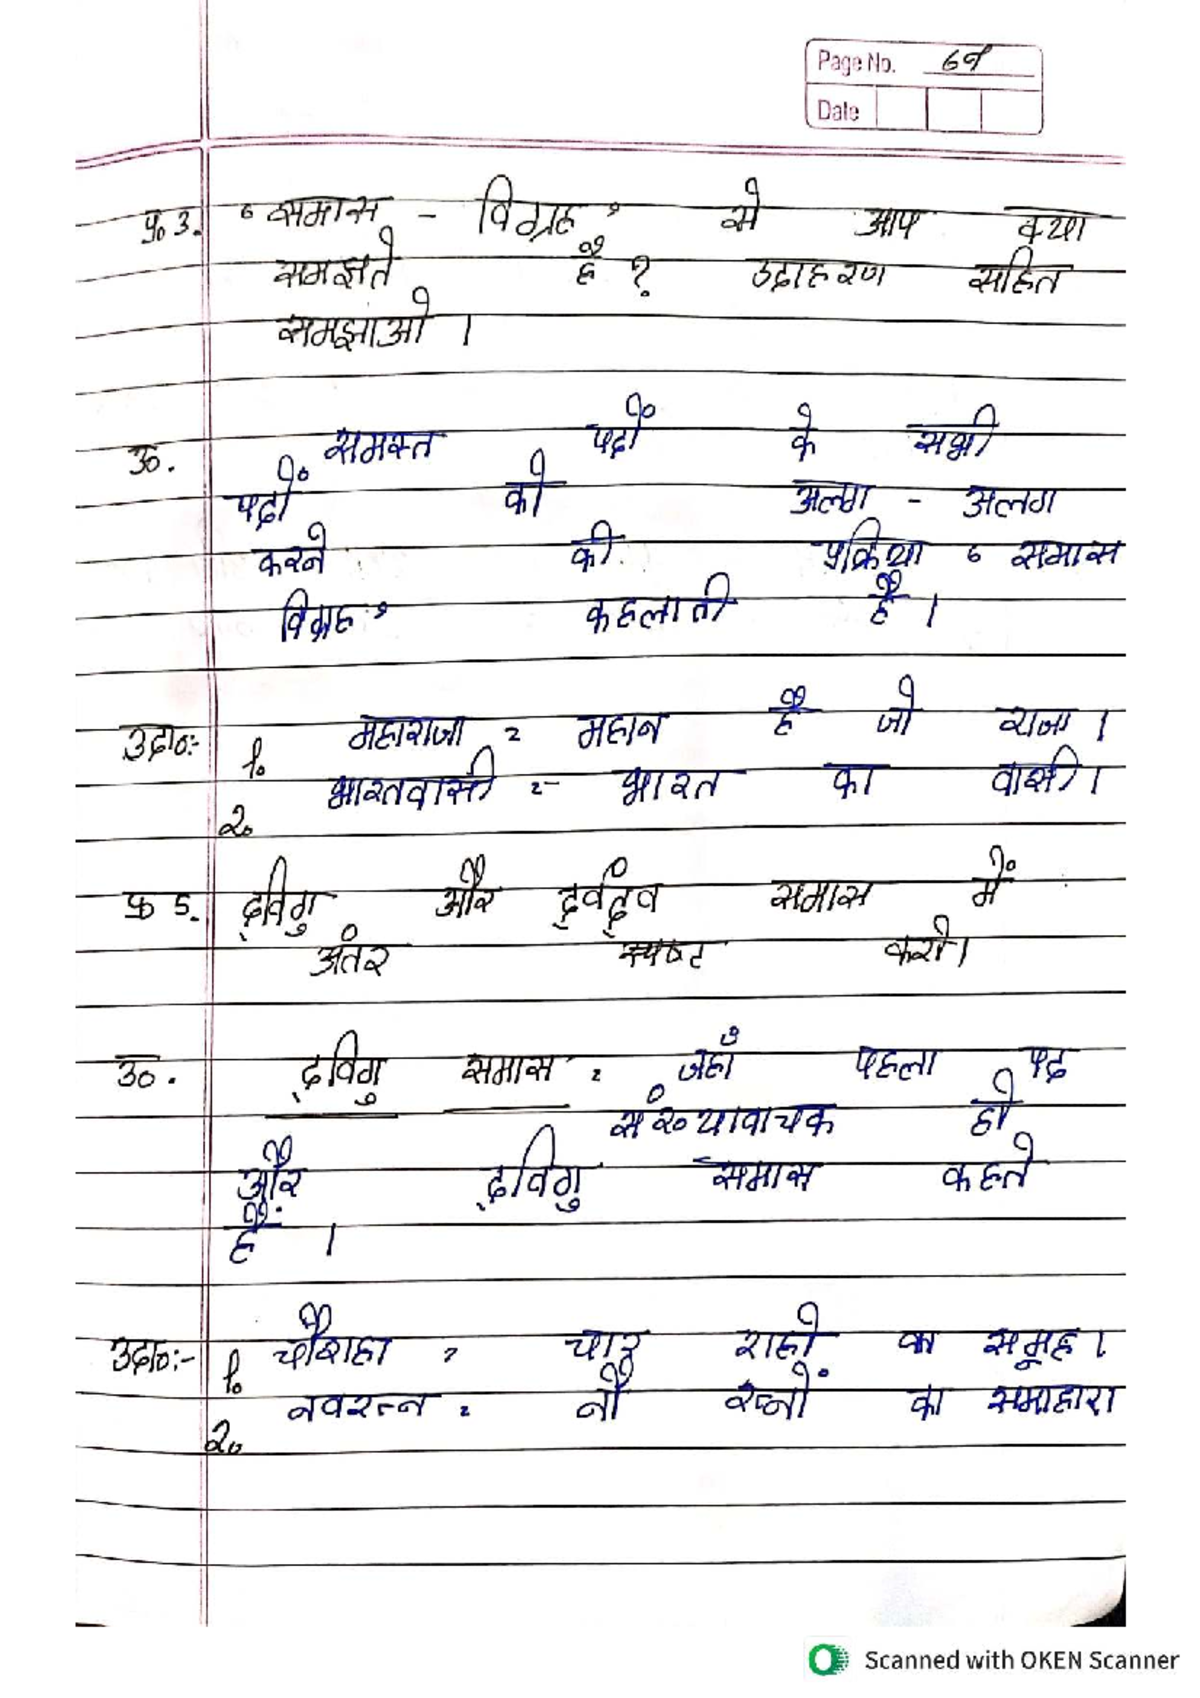 Page No. 69
Date
प्र० 3. ‘समास - विग्रह’ से आप क्या
समझते हैं ? उदाहरण सहित
समझाओ ।
उ०. समस्त पदों के सभी
पदों को अलग - अलग
करने की प्रक्रिया ‘समास
विग्रह’ कहलाती है ।
उदा०:- 1. महाराजा = महान है जो राजा ।
2. भारतवासी :- भारत का वासी ।
प्र० 5. द्विगु और द्वंद्व समास में
अंतर स्पष्ट करो ।
उ०. द्विगु समास = जहाँ पहला पद
संख्यावाचक हो
और द्विगु समास कहते
हैं ।
उदा०:- 1. चौराहा = चार राहो का समूह ।
2. नवरत्न = नौ रत्नों का समाहारा
Scanned with OKEN Scanner